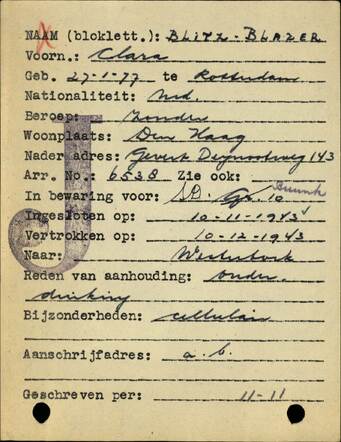 NAAM (bloklett.): BLITZ-BLAZER
Voorn.: Clara
Geb. 27-1-77 te Rotterdam
Nationaliteit: Ned.
Beroep: Zonder
Woonplaats: Den Haag
Nader adres: Gevers Deynootweg 143
Arr. No.: 6538 Zie ook:
In bewaring voor: S.D. Gr. 10
Ingesloten op: 10-11-1943
Vertrokken op: 10-12-1943
Naar: Westerbork
Reden van aanhouding: onder
duiking
Bijzonderheden: cellulair
Aanschrijfadres: a.b.
Geschreven per: 11-11
J